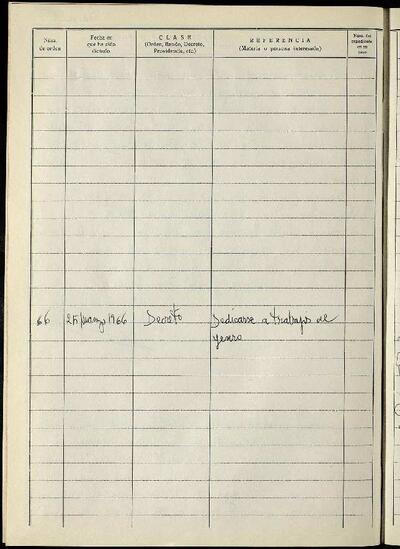 Núm. de orden
Fecha en que ha sido dictado
CLASE
(Orden, Bando, Decreto, Providencia, etc.)
REFERENCIA
(Materia o persona interesada)
Núm. del expediente en su caso
66 25 marzo 1966 Decreto Dedicarse a trabajos de
yenso